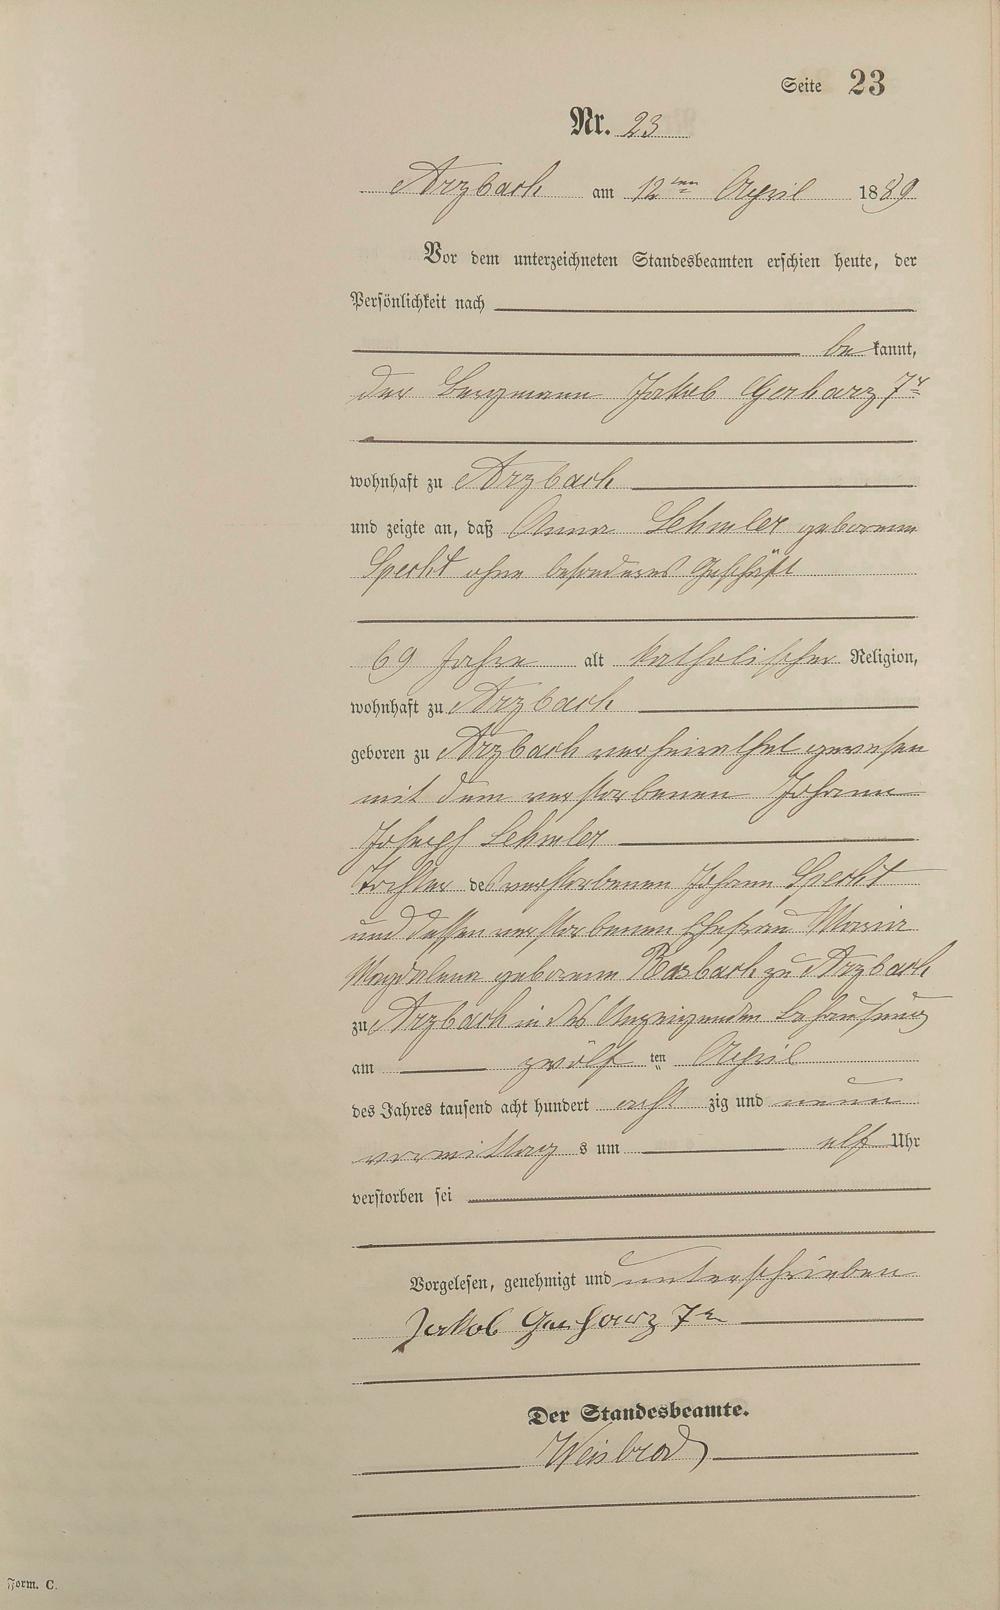 Seite 23
Nr. 23
Arzbach am 12ten April 1889
Vor dem unterzeichneten Standesbeamten erschien heute, der
Persönlichkeit nach
bekannt,
der Bergmann Jakob Gerharz 7r
wohnhaft zu Arzbach
und zeigte an, daß Anna Lehmler geborene
Specht ohne besonderes Geschäft
69 Jahre alt katholischer Religion,
wohnhaft zu Arzbach
geboren zu Arzbach verheirathet gewesen
mit dem verstorbenen Johann
Joseph Lehmler
Tochter des verstorbenen Johann Specht
und dessen verstorbenen Ehefrau Maria
Magdalena geborene Rosbach zu Arzbach
zu Arzbach in des Anzeigenden Behausung
am zwölften April
des Jahres tausend acht hundert achtzig und neun
vormittags um elf Uhr
verstorben sei
Vorgelesen, genehmigt und unterschrieben
Jakob Gerharz 7r
Der Standesbeamte.
Weisbrod
Form. C.